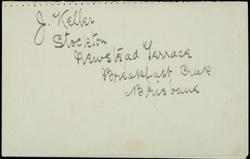 J. Keller
Stockton
Newstead Terrace
Breakfast Creek
Brisbane